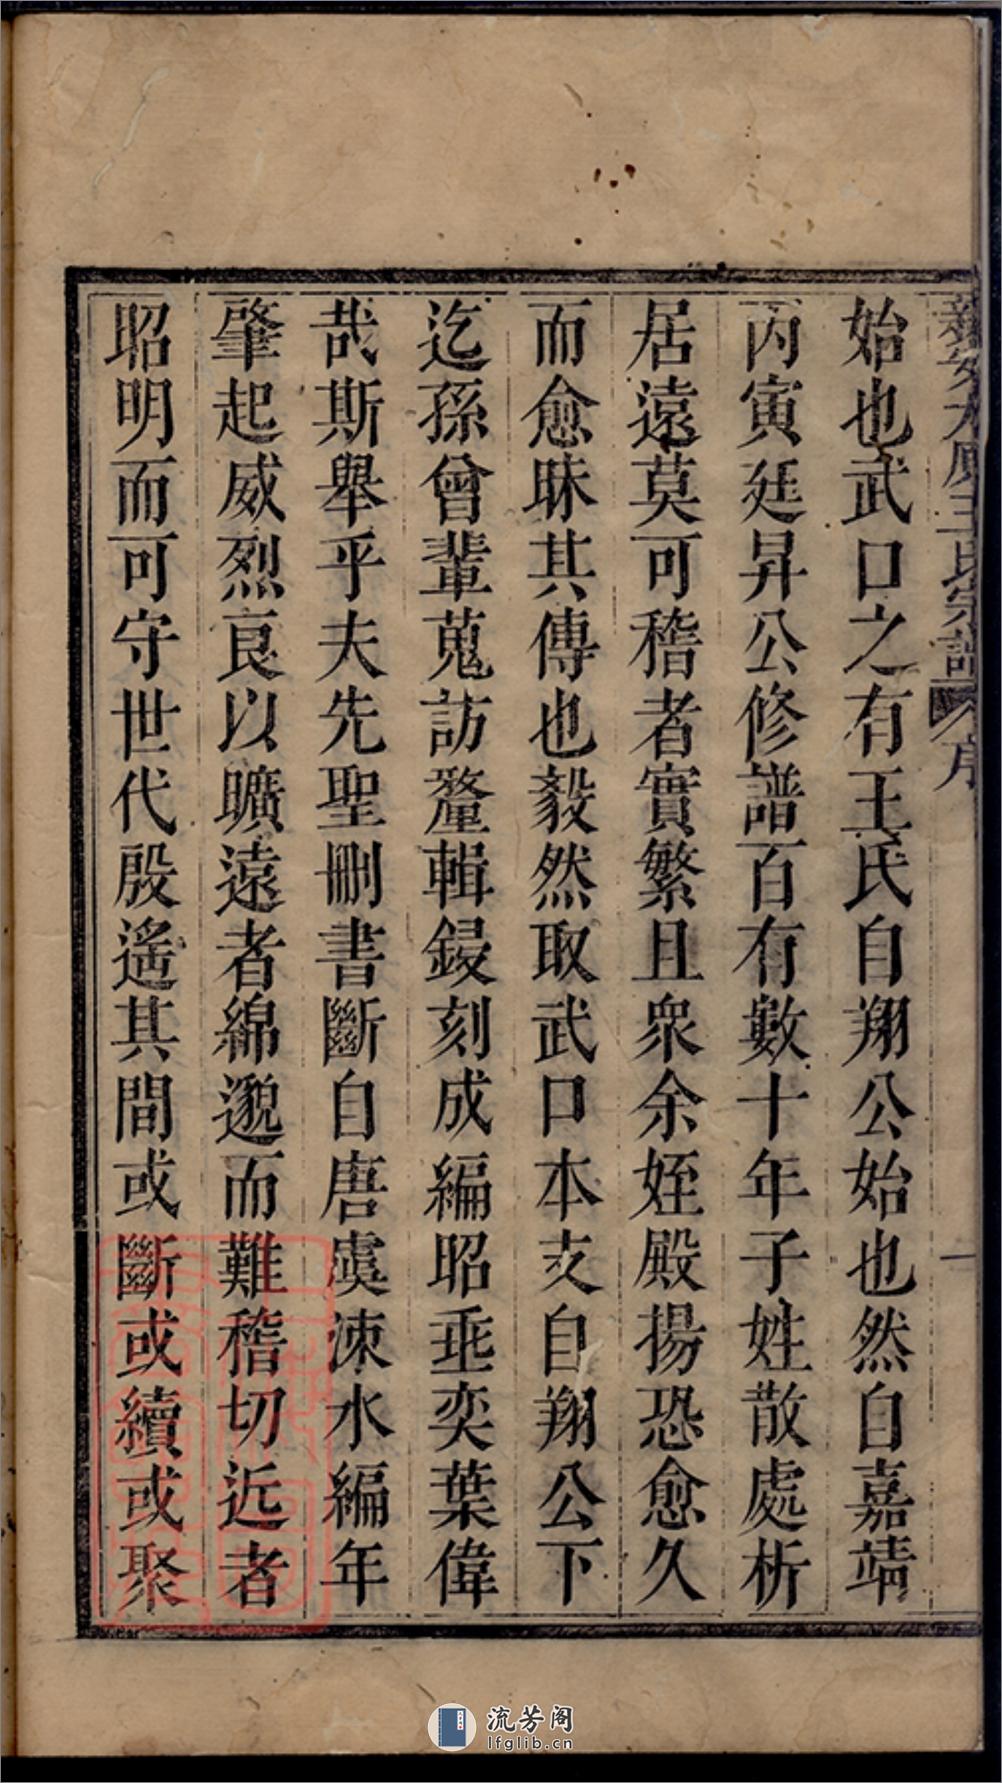 新安大應王氏宗譜 序 一
始也武口之有王氏自翔公始也然自嘉靖
丙寅廷昇公修譜百有數十年子姓散處析
居遠莫可稽者實繁且衆余姪殿揚恐愈久
而愈昧其傳也毅然取武口本支自翔公下
迄孫曾輩蒐訪釐輯鋟刻成編昭垂奕葉偉
哉斯舉乎夫先聖刪書斷自唐虞涑水編年
肇起威烈良以曠遠者綿邈而難稽切近者
昭明而可守世代殷遙其間或斷或續或聚
流芳阁
lfglib.cn